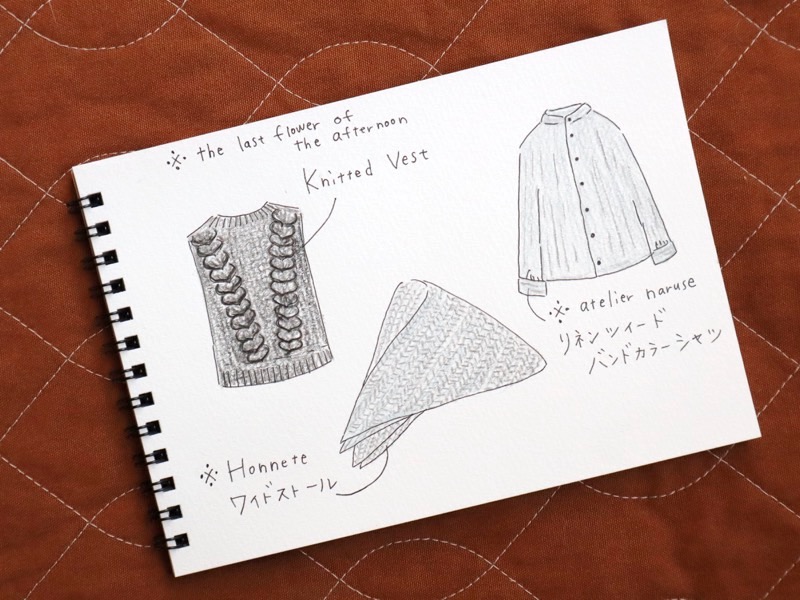 ※ the last flower of
the afternoon
Knitted Vest
※ atelier naruse
リネンツィード
バンドカラーシャツ
※ Honnete
ワイドストール